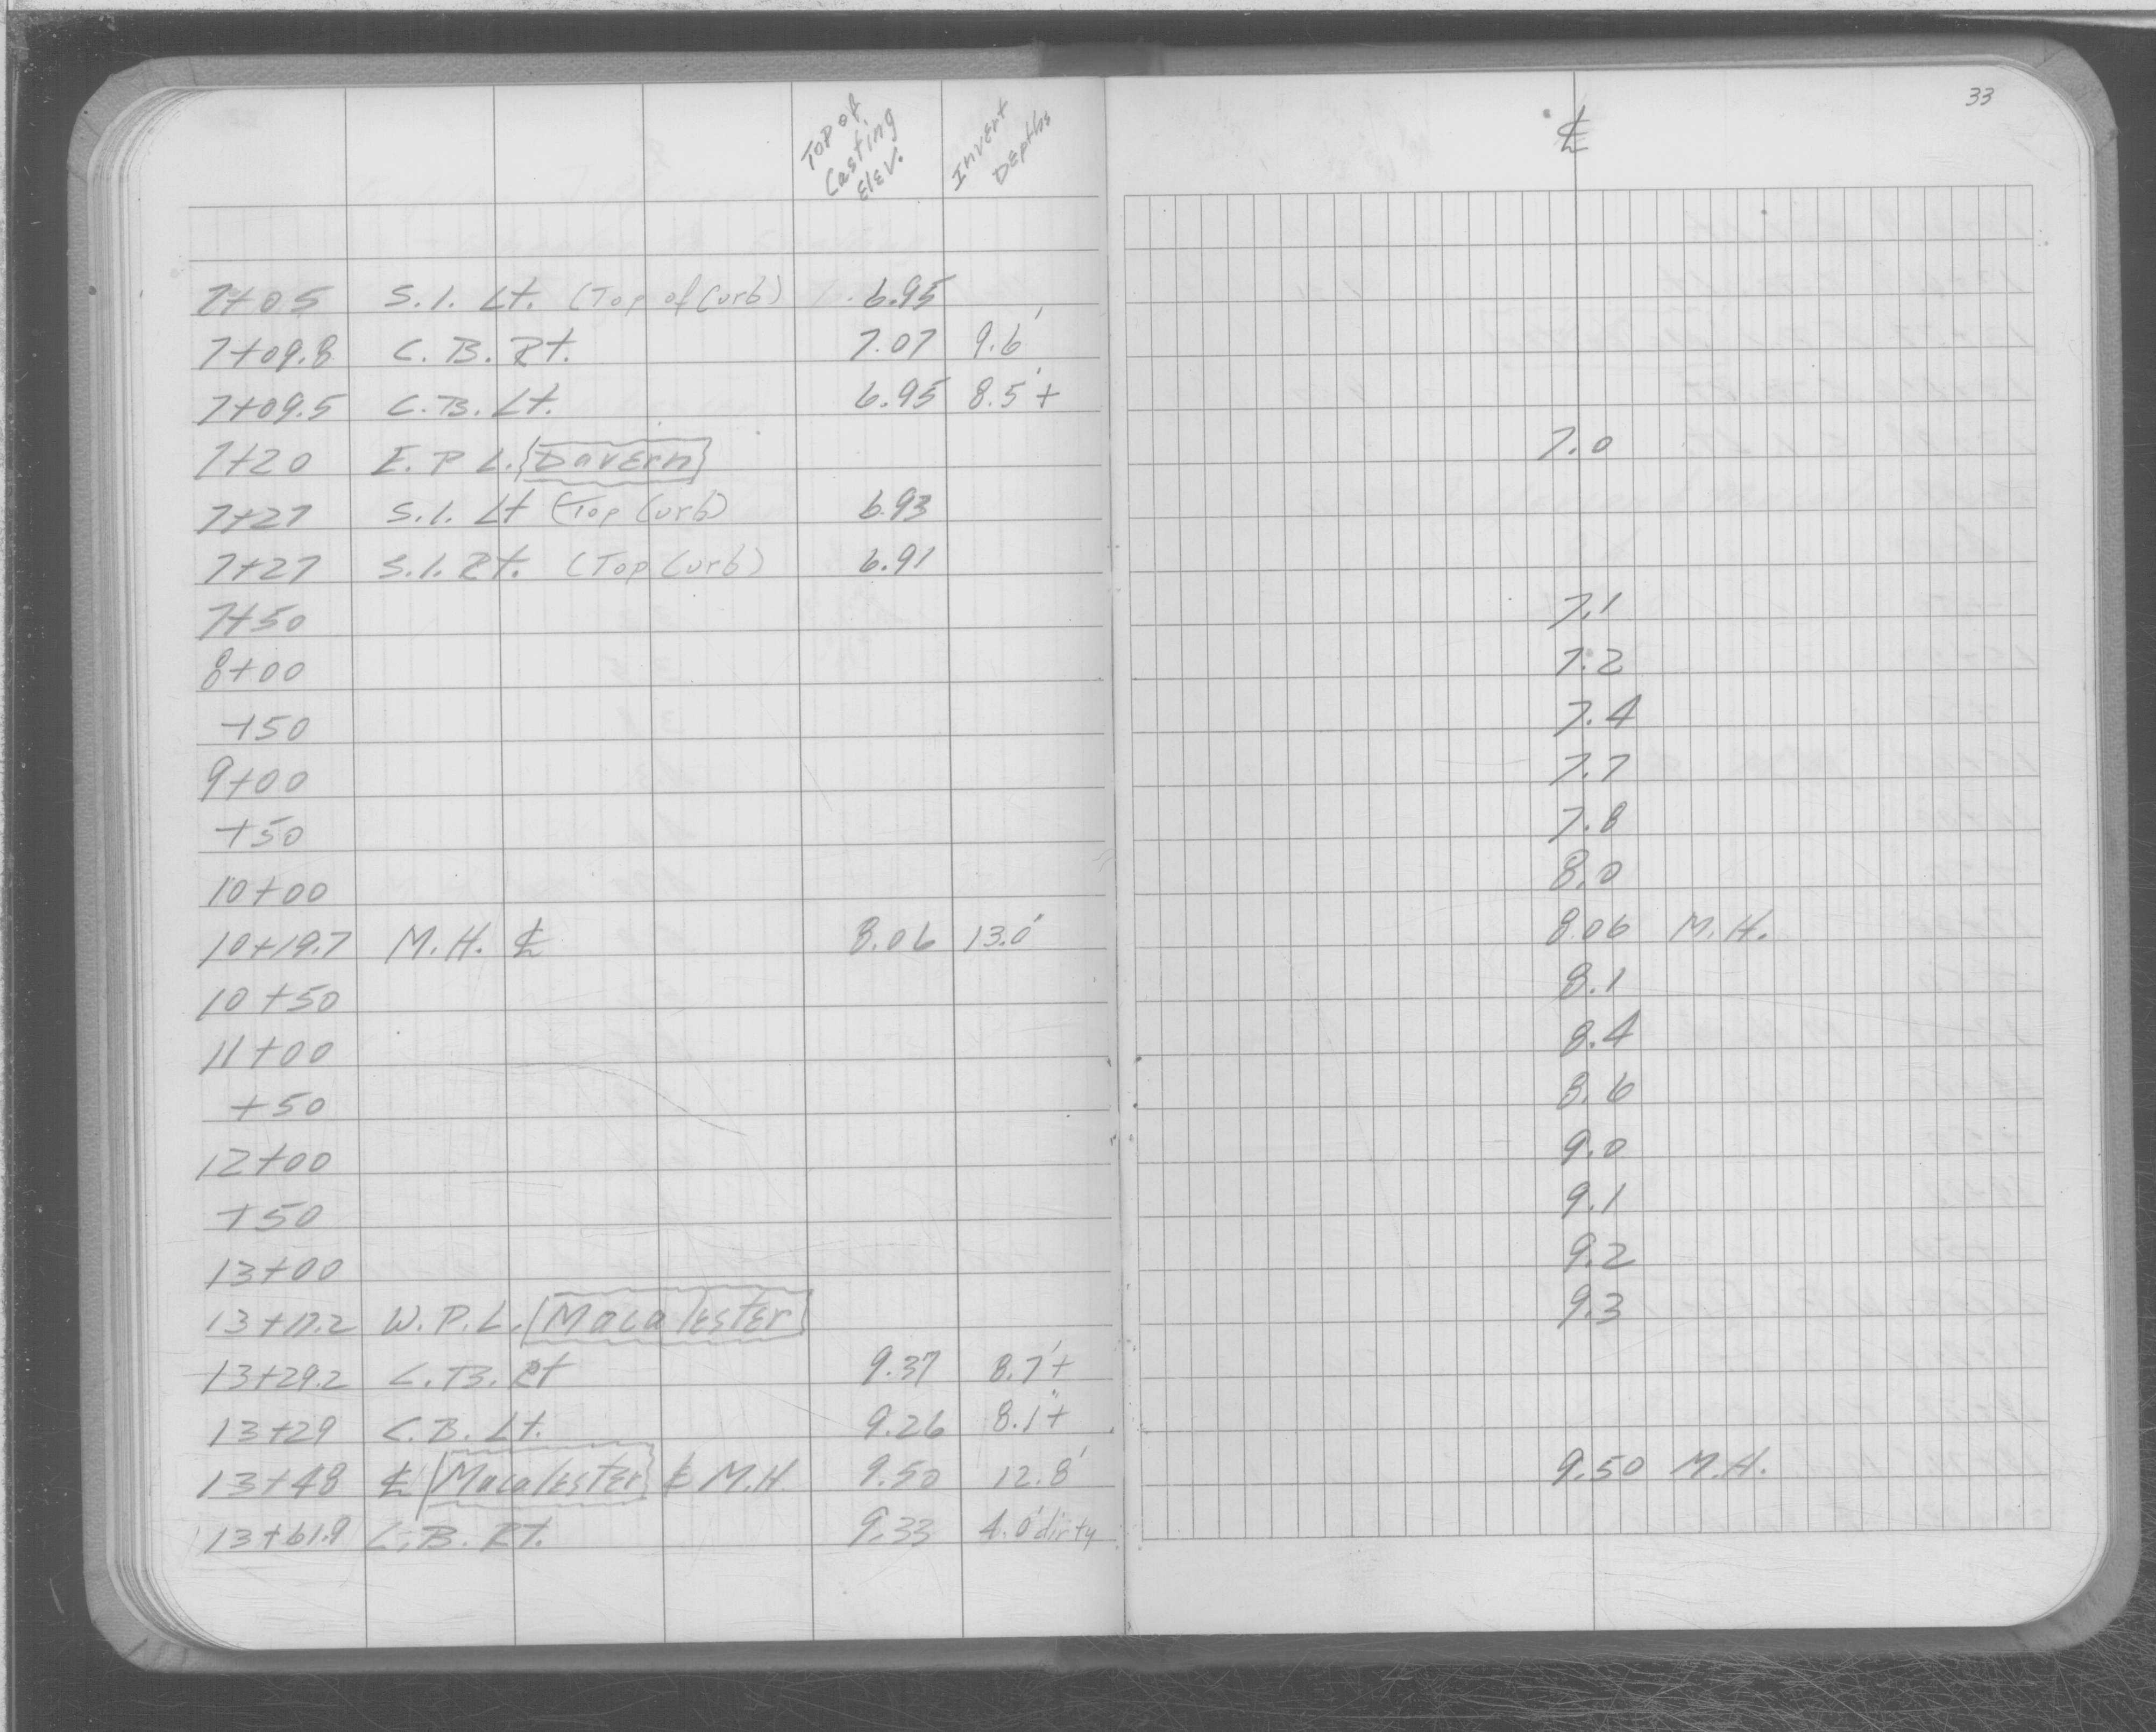 33
Top of Casting Elev. Invert Depths ℄
7+05 S.I. Lt. (Top of Curb) 6.95
7+09.8 C.B. Rt. 7.07 9.6'
7+09.5 C.B. Lt. 6.95 8.5'+
7+20 E.P.L. Davern 7.0
7+27 S.I. Lt (Top Curb) 6.93
7+27 S.I. Rt. (Top Curb) 6.91
7+50 7.1
8+00 7.2
+50 7.4
9+00 7.7
+50 7.8
10+00 8.0
10+19.7 M.H. ℄ 8.06 13.0' 8.06 M.H.
10+50 8.1
11+00 8.4
+50 8.6
12+00 9.0
+50 9.1
13+00 9.2
13+17.2 W.P.L. Macalester 9.3
13+29.2 C.B. Rt 9.37 8.7'+
13+29 C.B. Lt. 9.26 8.1'+
13+48 ℄ Macalester ℄ M.H. 9.50 12.8' 9.50 M.H.
13+61.9 C.B. Rt. 9.33 4.0' dirty